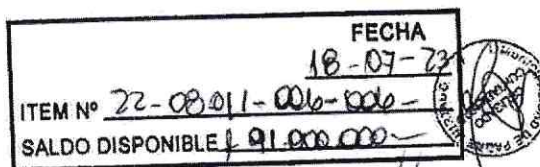 FECHA
18-07-23
ITEM Nº 22-08-011-006-006-
SALDO DISPONIBLE $ 91.000.000-